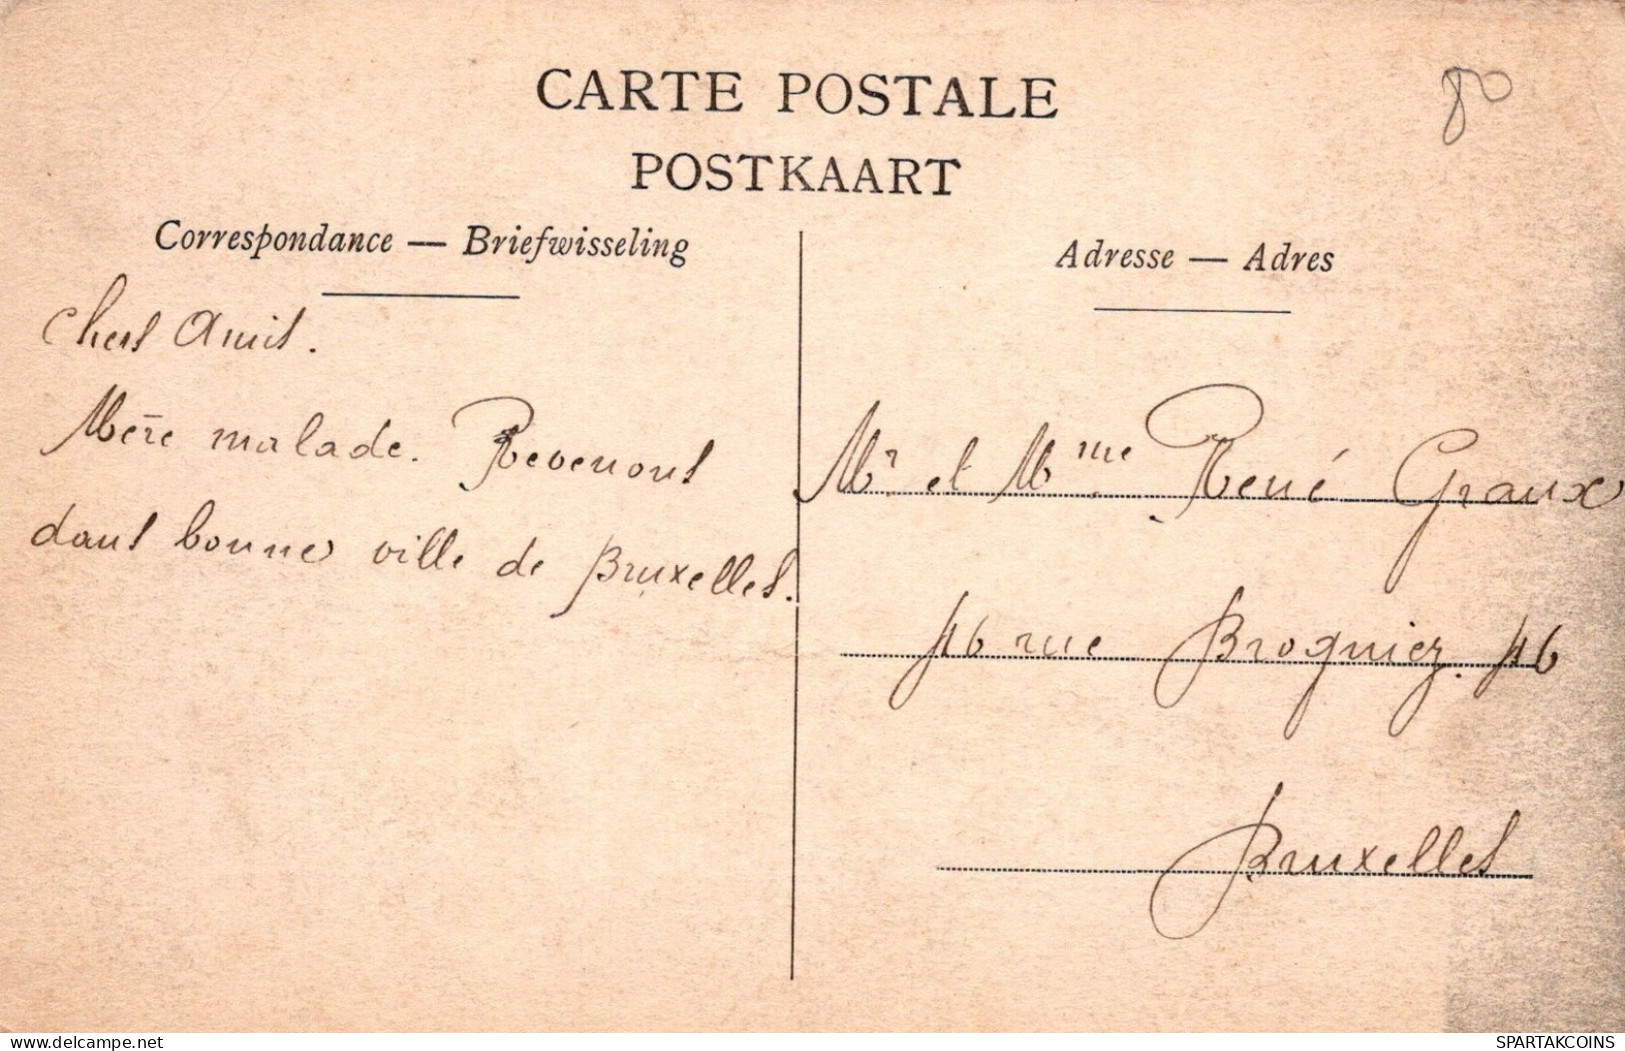 CARTE POSTALE
80
POSTKAART
Correspondance — Briefwisseling
Chers Amis.
Mère malade. Revenons
dans bonne ville de Bruxelles.
Adresse — Adres
Mr et Mme René Graux
46 rue Brogniez. 46
Bruxelles
Spartakcoins.com for delcampe.net
SPARTAKCOINS